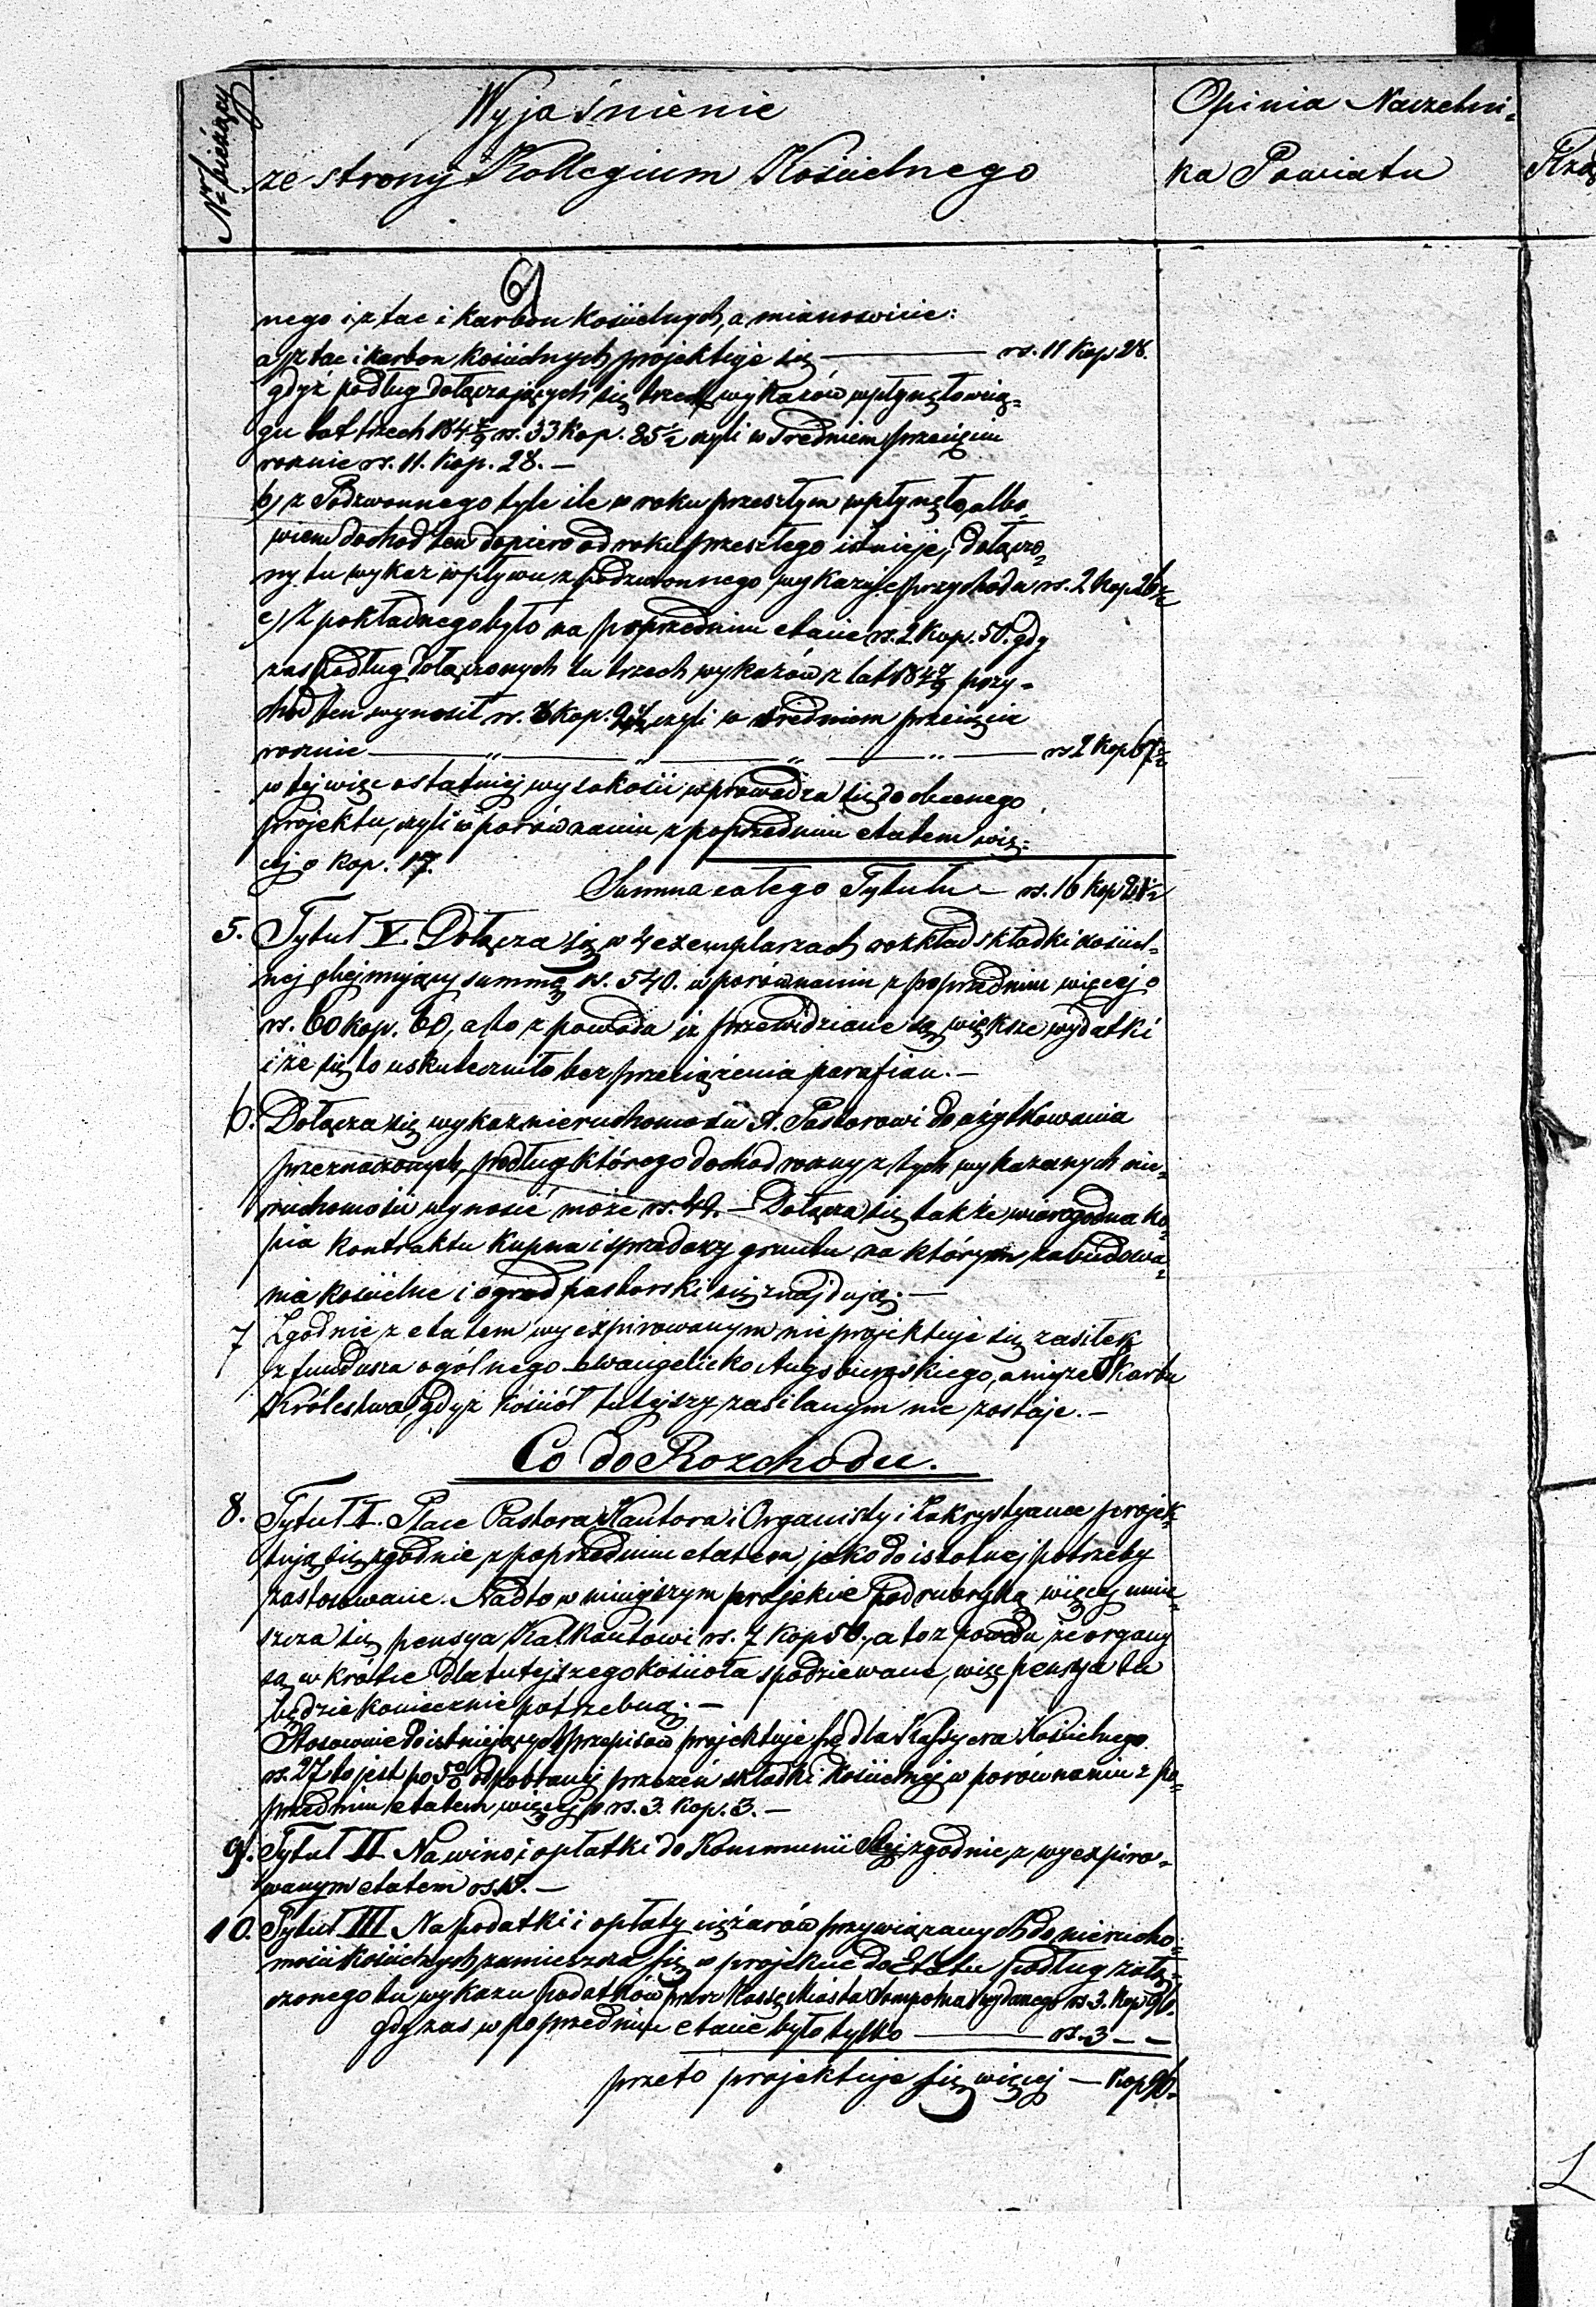 Nr bieżący
Wyjaśnienie
ze strony Kollegium Kościelnego
Opinia Naczelni-
ka Powiatu
nego i z tac i karbon kościelnych, a mianowicie:
a) z tac i karbon kościelnych projektuje się — rs. 11 kop 28.
gdyż podług dołączających się trzech wykazów wpłynęło w cią-
gu lat trzech 184 7/9 rs. 33 kop. 85 ½ czyli w średniem przecięciu
rocznie rs. 11. kop. 28. —
b) z Podzwonnego tyle ile w roku przeszłym wpłynęło, albo-
wiem dochod ten dopiero od roku przeszłego istnieje, dołączo-
ny tu wykaz wpływu z podzwonnego wykazuje przychodu rs. 2 kop. 26 ½
c) Z pokładnego było na poprzednim etacie rs. 2 kop. 50. gdy
zas podług dołączonych tu trzech wykazów z lat 184 7/9 przy-
chod ten wynosił rs. kop. czyli w średniem przecięciu
rocznie — „ — „ — „ — „ — rs 2 kop 67 ½
w tej więc ostatniej wysokości wprowadza się do obecnego
projektu, czyli w porównaniu z poprzednim etatem wię-
cej o kop. 17.
Summa całego Tytułu — rs. 16 kop
5. Tytuł V. Dołącza się w 4 exemplarzach rozkład składki kościel-
nej obejmujący summę rs. 540. w porównaniu z poprzednim więcej o
rs. 60 kop. 60, a to z powodu iż przewidziane są większe wydatki
i że się to uskuteczniło bez przeciążenia parafian. —
6. Dołącza się wykaz nieruchomości X. Pastorowi do użytkowania
przeznaczonych, podług którego dochod roczny z tych wykazanych nie-
ruchomości wynosić może rs. 49. — Dołącza się także wiarogodna ko-
pia kontraktu kupna i sprzedaży gruntu na którym zabudowa-
nia kościelne i ogrod pastorski się znajdują. —
7 Zgodnie z etatem wyexpirowanym nie projektuje się zasiłek
z funduszu ogólnego ewangelicko Augsburgskiego, ani ze Skarbu
Królestwa, gdyż kościół tutejszy zasilanym nie zostaje. —
Co do Rozchodu.
8. Tytuł I. Płace Pastora Kantora i Organisty i Zakrystyana projek-
tują się zgodnie z poprzednim etatem, jako do istotnej potrzeby
zastosowane. Nadto w niniejszym projekcie pod rubryką więcej umie-
szcza się pensya Kalkantowi rs. 7 kop 50., a to z powodu że organy
są w krótce dla tutejszego kościoła spodziewane, więc pensya ta
będzie koniecznie potrzebną. —
Stosownie do istniejących przepisow projektuje się dla Kassyera Kościelnego
rs. 27 to jest po 5% od pobranej przezeń składki kościelnej w porównaniu z po-
przednim etatem więcej o rs. 3. kop. 3. —
9. Tytuł II Na wino i opłatki do Kommunii Stej zgodnie z wyexpiro-
wanym etatem —
10. Tytuł III Na podatki i opłaty ciężarów przywiązanych do nierucho-
mości kościelnych zamieszcza się w projekcie do Etatu podług załą-
czonego tu wykazu podatków przez Kassę Miasta Sompolna wydanego rs 3. kop 96.
gdy zas w poprzednim etacie było tylko — rs. 3 — —
przeto projektuje się więcej — kop 96.